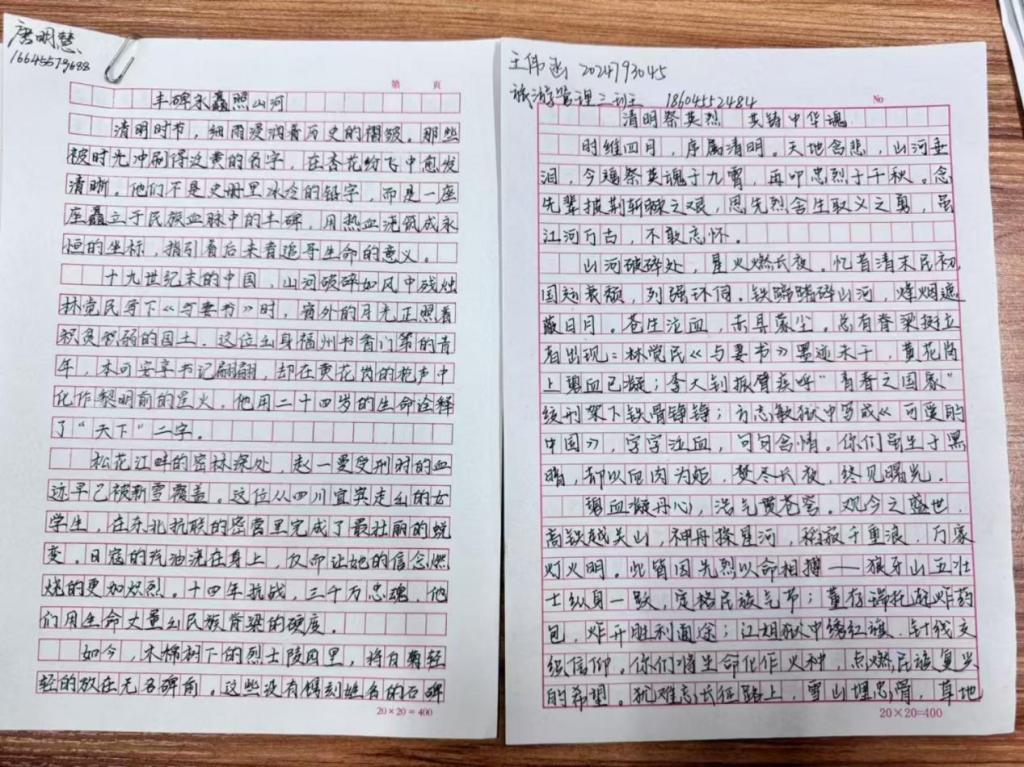 唐明慧
16645579688
第 页
丰碑永矗照山河
清明时节，细雨浸润着历史的褶皱。那些
被时光冲刷得泛黄的名字，在杏花纷飞中愈发
清晰。他们不是史册里冰冷的铅字，而是一座
座矗立于民族血脉中的丰碑，用热血浇筑成永
恒的坐标，指引着后来者追寻生命的意义。
十九世纪末的中国，山河破碎如风中残烛
林觉民写下《与妻书》时，窗外的月光正照着
积贫积弱的国土。这位出身福州书香门第的青
年，本可安享书记翩翩，却在黄花岗的枪声中
化作黎明前的星火。他用二十四岁的生命诠释
了“天下”二字。
松花江畔的密林深处，赵一曼受刑时的血
迹早已被新雪覆盖。这位从四川宜宾走出的女
学生，在东北抗联的密营里完成了最壮丽的蜕
变。日寇的汽油浇在身上，反而让她的信念燃
烧的更加炽烈。十四年抗战，三千万忠魂，他
们用生命丈量出民族脊梁的硬度。
如今，木棉树下的烈士陵园里，将白菊轻
轻的放在无名碑前。这些没有镌刻姓名的石碑
20×20=400
王伟函 2024793045
旅游管理二班 18604552484
No
清明祭英烈 共铸中华魂
时维四月，序属清明。天地含悲，山河垂
泪，今瑞祭英魂于九霄，再叩忠烈于千秋。念
先辈披荆斩棘之艰，思先烈舍生取义之勇，虽
江河万古，不敢忘怀。
山河破碎处，星火燃长夜。忆昔清末民初，
国祚衰颓，列强环伺。铁蹄踏碎山河，烽烟遮
蔽日月。苍生泣血，赤县蒙尘。总有脊梁挺立
者出现：林觉民《与妻书》墨迹未干，黄花岗
上碧血已凝；李大钊振臂疾呼“青春之国家”
绞刑架下铁骨铮铮；方志敏狱中写成《可爱的
中国》，字字泣血，句句含情。你们虽生于黑
暗，却以血肉为炬，焚尽长夜，终见曙光。
碧血凝丹心，浩气贯苍穹。观今之盛世，
高铁越关山，神舟探星河，稻菽千重浪，万家
灯火明。此皆因先烈以命相搏——狼牙山五壮
士纵身一跃，定格民族气节；董存瑞托起炸药
包，炸开胜利通途；江姐狱中绣红旗，针线交
织信仰。你们将生命化作火种，点燃民族复兴
的希望。犹难忘长征路上，雪山埋忠骨，草地
20×20=400